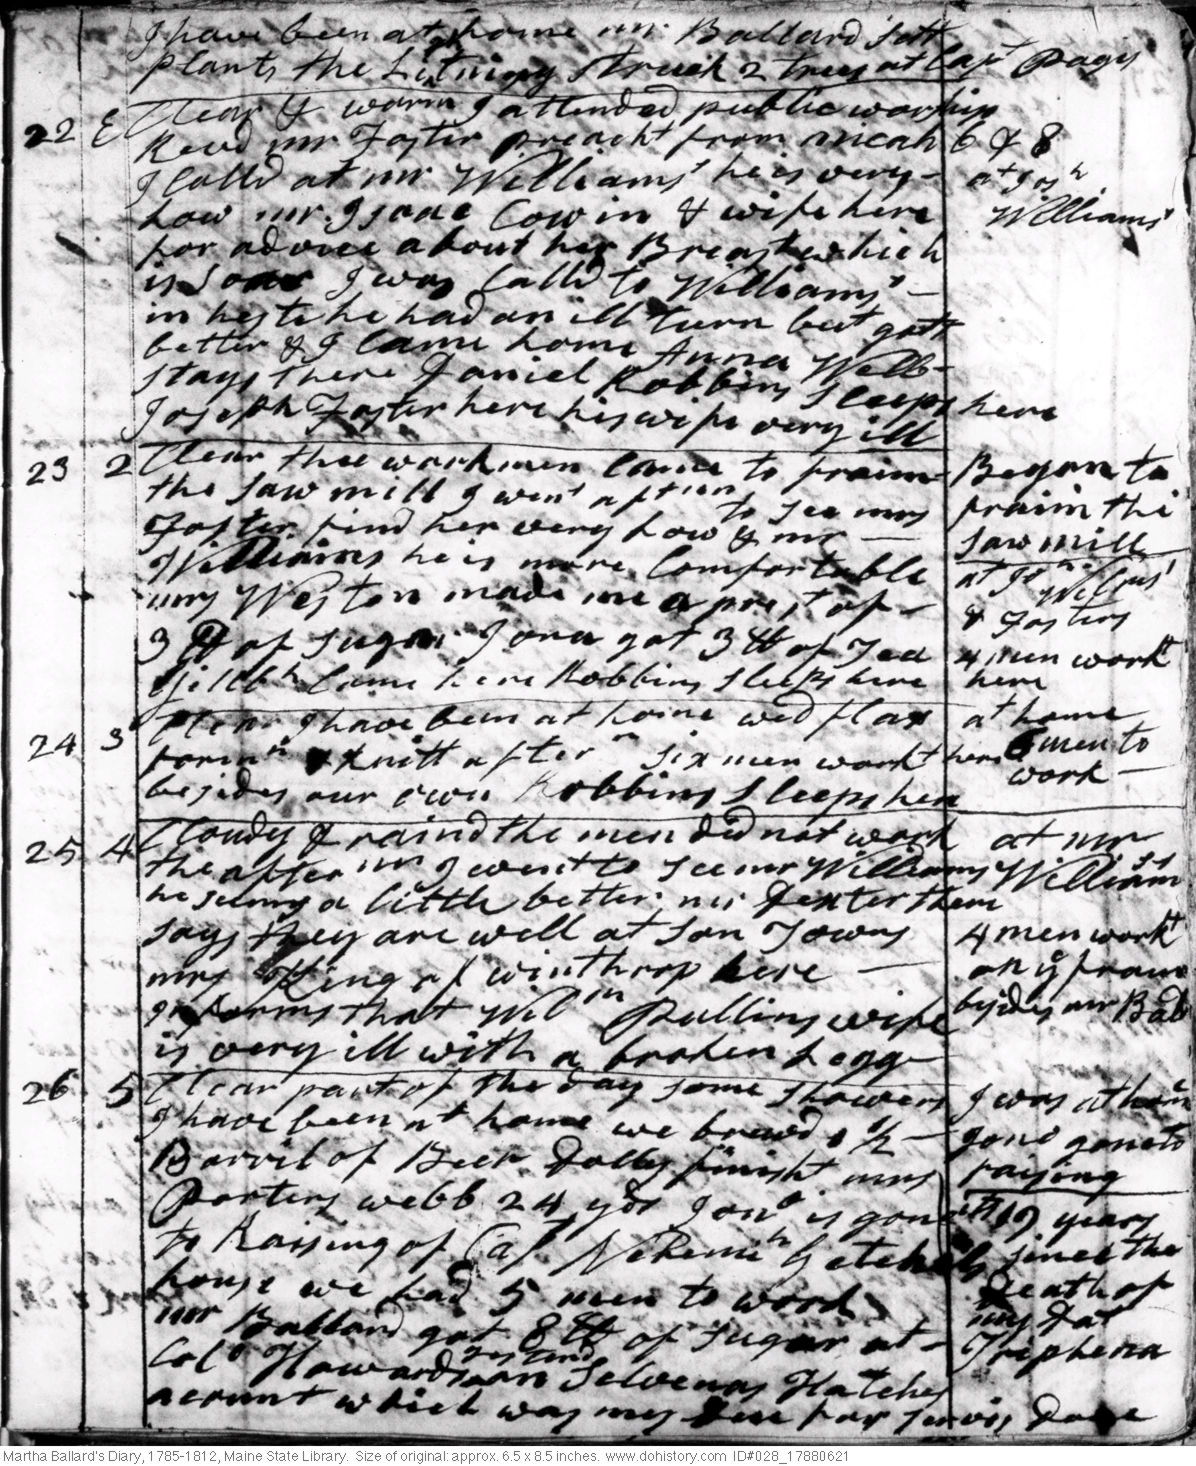 I have been at home mr Ballard Sett
plants the Litning struck 2 trees at Capt Pages
22 E Clear & warm I attended public worship
Revd mr Foster preacht from Micah 6 & 8
I Calld at mr Williams' he is very - at Josh
low mr Isaac Cowin & wife here Williams'
for advice about her Breast which
is Soar I was Calld to Williams' -
in heste he had an ill turn but gott
better & I Came home Anna Webb -
stays there Daniel Robbins Sleeps here
Joseph Foster here his wife very ill
23 2 Clear thee workmen Came to fraim - Began to
the Saw mill I went aftern to see mrs fraim the
Foster find her very low & mr — Saw mill
Williams he is more Comfortable at Josh Willms'
mrs Weston made me a prest of - & Fosters
3 lb of Sugar Jona got 3 lb of Tea 4 men workt
Gillbh Came here Robbins Sleeps here here
24 3 Clear I have been at home wed flax at home
foren & knitt aftern six men workt here 6 men to
besides our own Robbins Sleeps here work —
25 4 Cloudy & raind the men did not work at mr
the after nn I went to see mr Williams Williamss
he seems a little better mr Dexter there
says they are well at Son Towns 4 men workt
mrs King of winthrop here — on ye fraim
informs that Wilm Pullins wife besides mr Bald
is very ill with a broken Legg
26 5 Clear part of the day some showers I was at home
I have been at home we brewd 1/2 - Jona gone to
Barril of Beer Dolly finisht mrs raising
Porters webb 24 yds Jona is gone
to Raising of Capt Nehemih Getchels 19 years since the
house we had 5 men to work Death of
mr Ballard got 8 lb of sugar at - my Dat
Colo Howards on Selvenas Hatches Triphena
yesterd
acount which was my due for servis done